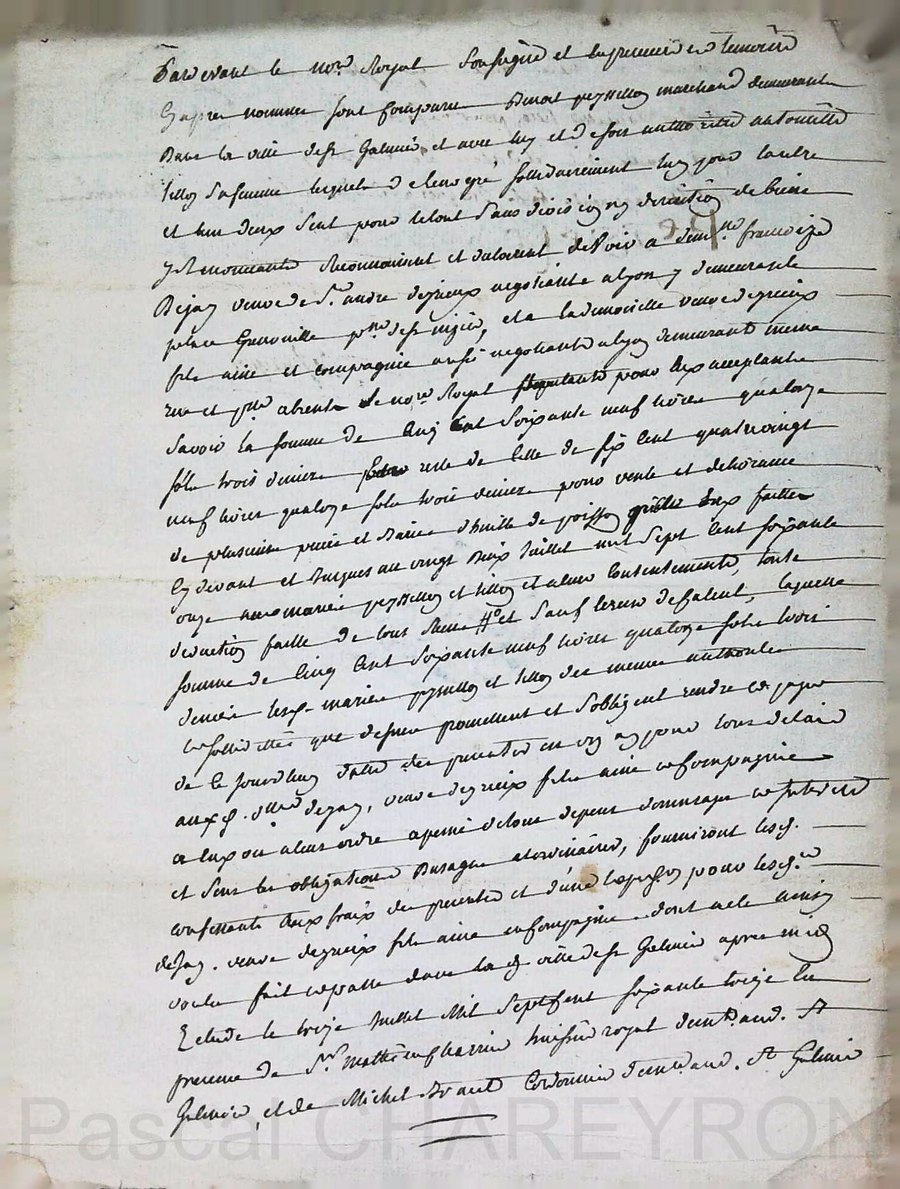 Pardevant le nore Royal Soussigné et en presence des temoins
Cyaprès nommés sont comparus Benoit peyssellon marchand demeurant
dans la ville de st Galmier et avec luy et de son authorité antoinette
tillon sa femme lesquels de leur gré solidairement l'un pour l'autre
et un deux seul pour le tout sans division ny discution de biens
y Renonceants Reconnoissent et declarent devoir a demlle françoise
Dejay veuve de Sr andre degrieux negotiante a lyon y demeurante
place Grenouille psse de st nizier, et a la demoiselle veuve degrieux
fils ainé et compagnie aussi negotiants a lyon demeurants meme
rue et psse absents le nore Royal stipulant pour eux acceptante
Savoir la somme de cinq cent soixante neuf livres quatorze
sols trois deniers reste de celle de six cent quatrevingt
neuf livres quatorze sols trois deniers pour vente et delivrance
de plusieurs pieces et Barils d'huille de poisson faittes
Cy devant et Jusques au vingt deux Juillet mil sept cent soixante
onze aux mariés peyssellon et tillon et a leur contentement, toute
deduction faitte de tous payements et sauf erreur de calcul, laquelle
somme de cinq cent soixante neuf livres quatorze sols trois
deniers lesd. mariés peyssellon et tillon des memes authorité
et solidité que dessus promettent et s'obligent rendre et payer
de ce jourd'huy datte des presentes en un an pour tous delais
auxd. dlles dejay, veuve degrieux fils ainé et compagnie
a eux ou a leur ordre a peine de tous depens dommages et interests
et sous les obligations Dusage et ordinaires, fourniront lesd.
confessants aux frais des presentes et d'une expedon pour lesd.
dejay. veuve degrieux fils ainé et compagnie. dont acte ainsy
voulu fait et passé dans lad ville de st Galmier apres midy
Le treize Juillet Mil Sept Cent soixante treize en
presence de Sr Mathieu huissier royal demt aud. St
Galmier, et de Michel Cordonnier demeurant aud. St Galmier
Pascal CHAREYRON